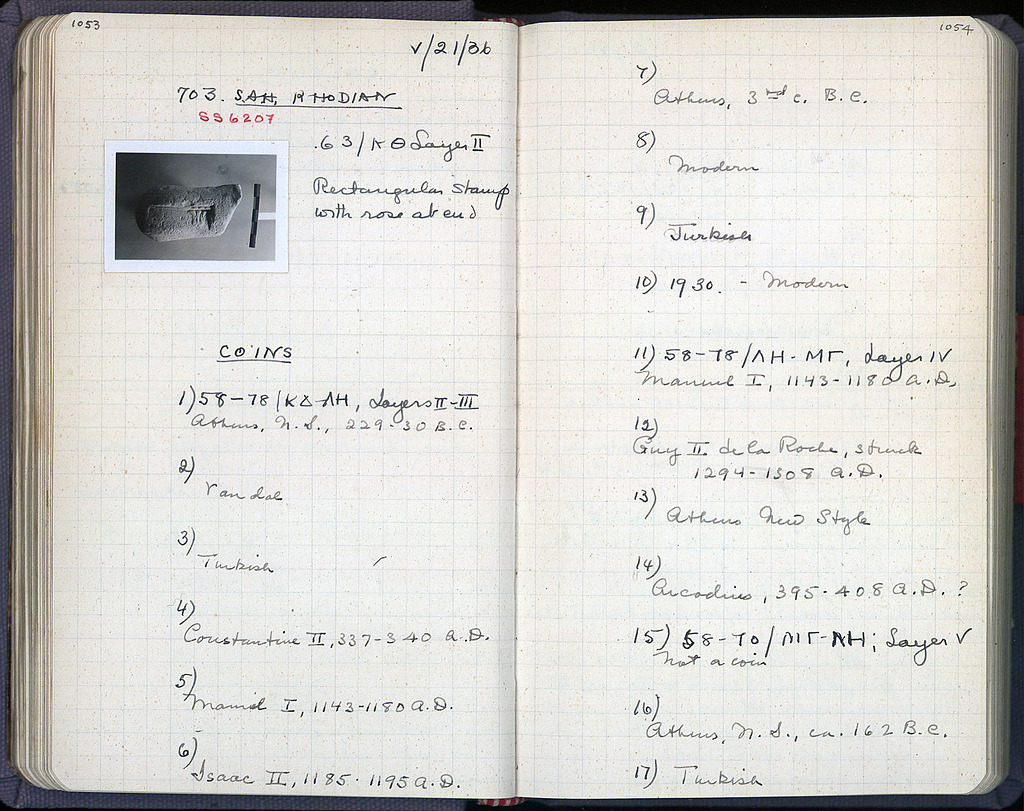 1053
V/21/36
703. SAH, RHODIAN
SS6207
.63/ΚΘ Layer II
Rectangular stamp
with rose at end
COINS
1) 58-78/ΚΔ-ΛΗ, Layers II-III
Athens, N.S., 229-30 B.C.
2)
Vandal
3)
Turkish
4)
Constantine II, 337-340 A.D.
5)
Manuel I, 1143-1180 A.D.
6)
Isaac II, 1185-1195 A.D.
1054
7)
Athens, 3rd c. B.C.
8)
Modern
9)
Turkish
10) 1930. - Modern
11) 58-78/ΛΗ-ΜΓ, Layer IV
Manuel I, 1143-1180 A.D.
12)
Guy II de la Roche, struck
1294-1308 A.D.
13)
Athens New Style
14)
Arcadius, 395-408 A.D. ?
15) 58-70/ΜΓ-ΛΗ; Layer V
Not a coin
16)
Athens, N.S., ca. 162 B.C.
17) Turkish